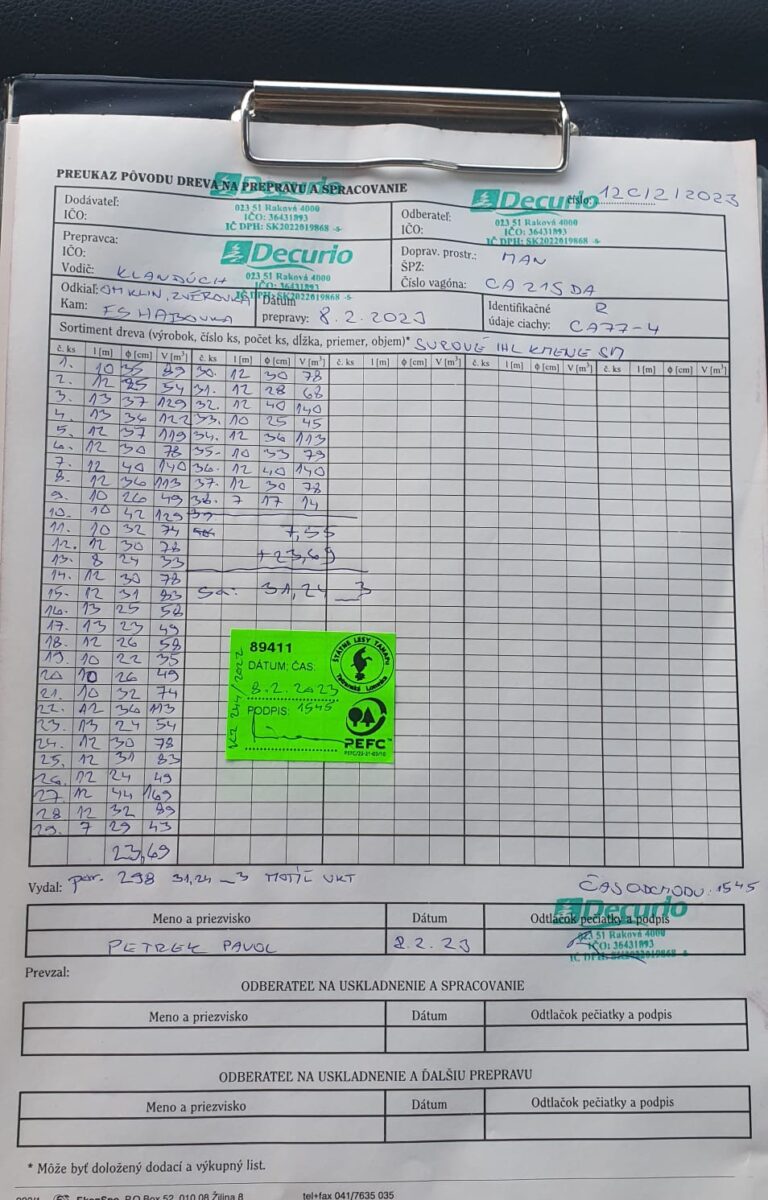 PREUKAZ PÔVODU DREVA NA PREPRAVU A SPRACOVANIE
číslo: 12C/2/2023
Dodávateľ:
IČO:
Decurio
023 51 Raková 4000
IČO: 36431893
IČ DPH: SK2022019868 -8-
Odberateľ:
IČO:
Decurio
023 51 Raková 4000
IČO: 36431893
IČ DPH: SK2022019868 -8-
Prepravca:
IČO:
Vodič: KLANDÚCH
Decurio
023 51 Raková 4000
IČO: 36431893
IČ DPH: SK2022019868 -8-
Doprav. prostr.: MAN
ŠPZ:
Číslo vagóna: CA 215 DA
Odkiaľ: OM KLIN, ZVEROVKA
Kam: ES HAJBOVKA
Dátum
prepravy: 8.2.2023
Identifikačné R
údaje ciachy: CA77-4
Sortiment dreva (výrobok, číslo ks, počet ks, dĺžka, priemer, objem)* SUROVÉ IHL KMENE SM
č. ks l [m] ϕ [cm] V [m³] č. ks l [m] ϕ [cm] V [m³] č. ks l [m] ϕ [cm] V [m³] č. ks l [m] ϕ [cm] V [m³] č. ks l [m] ϕ [cm] V [m³]
1. 10 35 89 30. 12 30 78
2. 12 25 54 31. 12 28 68
3. 13 37 129 32. 12 40 140
4. 13 36 122 33. 10 25 45
5. 12 37 119 34. 12 36 113
6. 12 30 78 35. 10 33 79
7. 12 40 140 36. 12 40 140
8. 12 36 113 37. 12 30 78
9. 10 26 49 38. 7 17 14
10. 10 42 129 39
11. 10 32 74 7,55
12. 12 30 78 +23,69
13. 8 24 33
14. 12 30 78
15. 12 31 83 Sa: 31,24 _3
16. 13 25 58
17. 13 23 49
18. 12 26 58
19. 10 22 35
20 10 26 49
21. 10 32 74
22. 12 36 113
23. 13 24 54
24. 12 30 78
25. 12 31 83
26. 12 24 49
27. 12 44 169
28 12 32 89
29. 7 29 43
23,69
89411
DÁTUM; ČAS:
8.2.2023
PODPIS: 1545
ŠTÁTNE LESY TANAPU
Tatranská Lomnica
PEFC
Vydal: por. 298 31,24 _3 MOTÍČ VKT
ČAS ODCHODU: 1545
Meno a priezvisko Dátum Odtlačok pečiatky a podpis
PETREK PAVOL 8.2.23
Decurio
023 51 Raková 4000
IČO: 36431893
IČ DPH: SK2022019868 -8-
Prevzal:
ODBERATEĽ NA USKLADNENIE A SPRACOVANIE
Meno a priezvisko Dátum Odtlačok pečiatky a podpis
ODBERATEĽ NA USKLADNENIE A ĎALŠIU PREPRAVU
Meno a priezvisko Dátum Odtlačok pečiatky a podpis
* Môže byť doložený dodací a výkupný list.
P.O.Box 52, 010 08 Žilina 8 tel+fax 041/7635 035